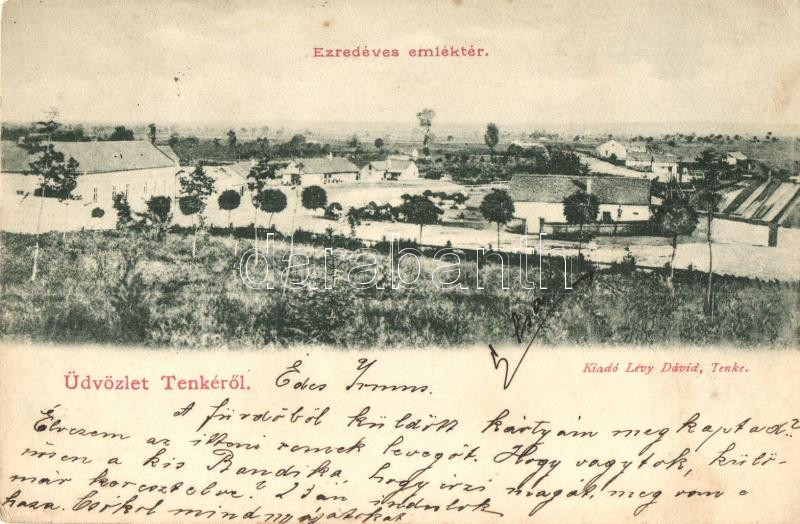 Ezredéves emléktér.
darabanth
Üdvözlet Tenkéről.
Kiadó Lévy Dávid, Tenke.
Édes Irmus.
A fürdőből küldött kártyám megkaptad?
Élvezem az itteni remek levegőt. Hogy vagytok, külö-
nösen a kis Bandika, hogy érzi magát, meg van e
már keresztelve? 2 án indulok
haza. Csókol mindnyájatokat